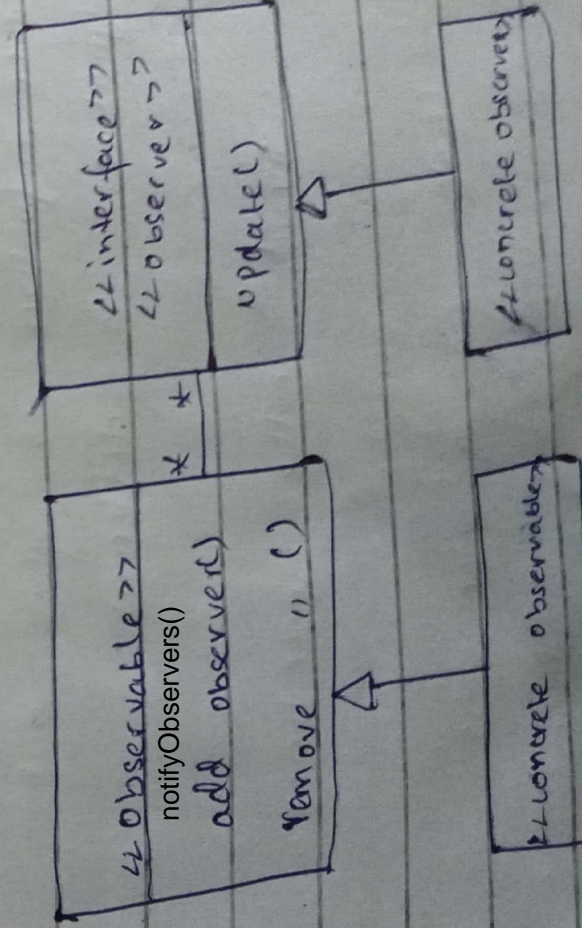 <<observable>>
notifyObservers()
add observer()
remove " ()
* *
<<interface>>
<<observer>>
update()
<<concrete observable>>
<<concrete observer>>